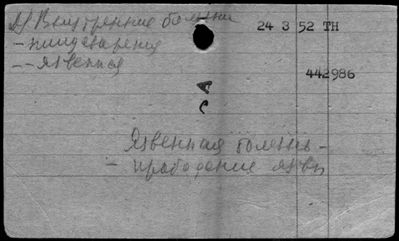 Внутренние болезни
24 3 52 TH
- пищеварения
-- язвенная
442986
Язвенная болезнь -
- прободение язвы